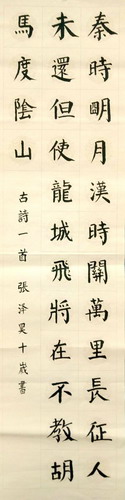 秦時明月漢時關萬里長征人
未還但使龍城飛將在不教胡
馬度陰山
古詩一首 張泽昊十歲書